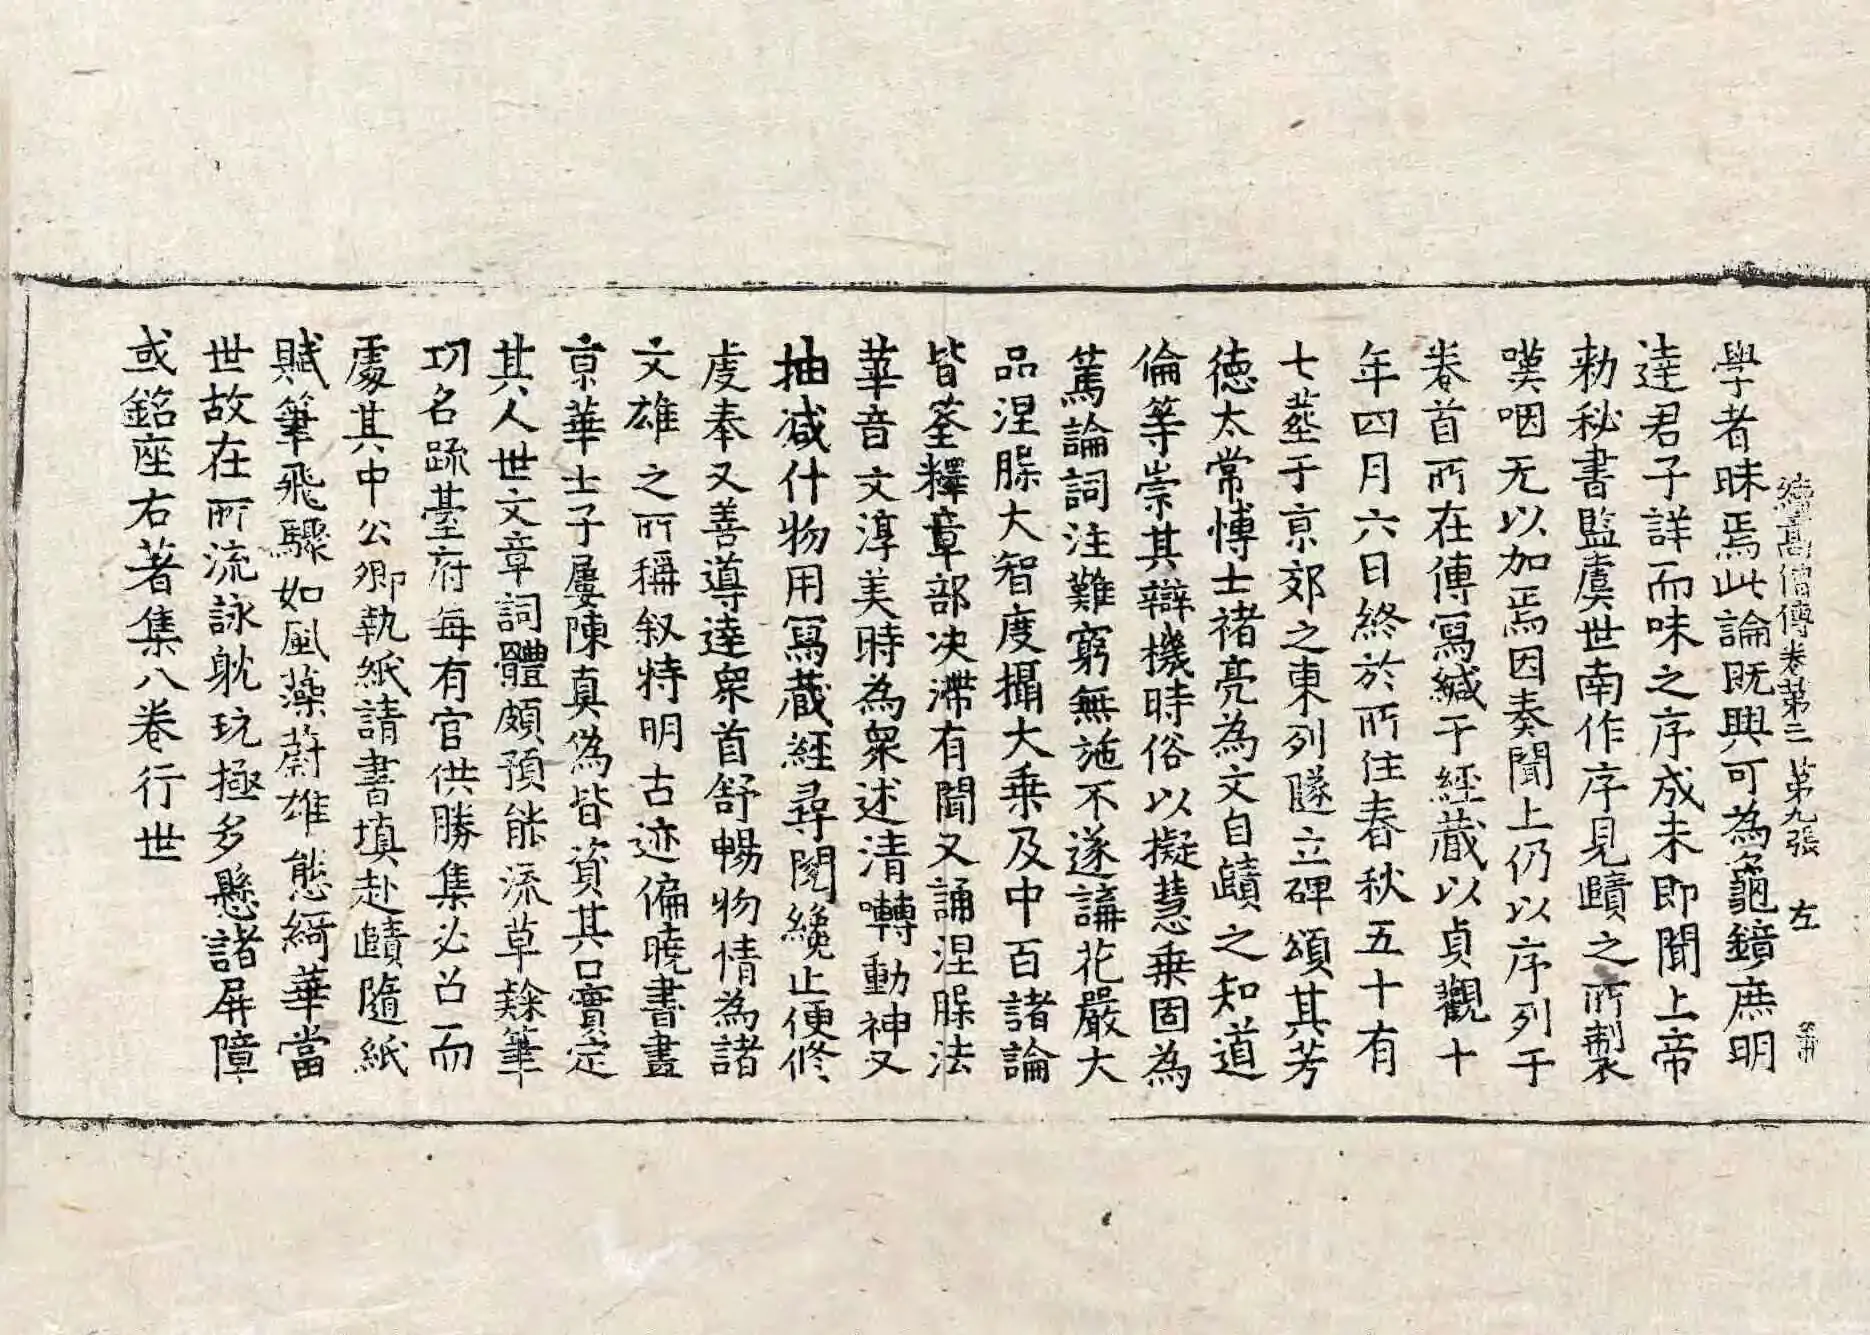 續高僧傳卷第三 第九張 左
學者昧焉此論既興可為龜鏡庶明
達君子詳而味之序成未即聞上帝
勅秘書監虞世南作序見賾之所製
嘆咽无以加焉因奏聞上仍以序列于
卷首所在傳寫緘于經藏以貞觀十
年四月六日終於所住春秋五十有
七葬于京郊之東列隧立碑頌其芳
德太常博士褚亮為文自賾之知道
倫等崇其辯機時俗以擬慧乗固為
篤論詞注難窮無施不遂講花嚴大
品涅槃大智度攝大乗及中百諸論
皆筌釋章部决滯有聞又誦涅槃法
華音文淳美時為衆述清囀動神又
抽减什物用寫藏經尋閱纔止便修
虔奉又善導達衆首舒暢物情為諸
文雄之所稱叙特明古迹偏曉書畫
京華士子屢陳真偽皆資其口實定
其人世文章詞體頗預能流草隸筆
功名踈臺府每有官供勝集必召而
處其中公卿執紙請書填赴賾隨紙
賦筆飛驟如風藻蔚雄態綺華當
世故在所流詠躭玩極多懸諸屏障
或銘座右著集八卷行世